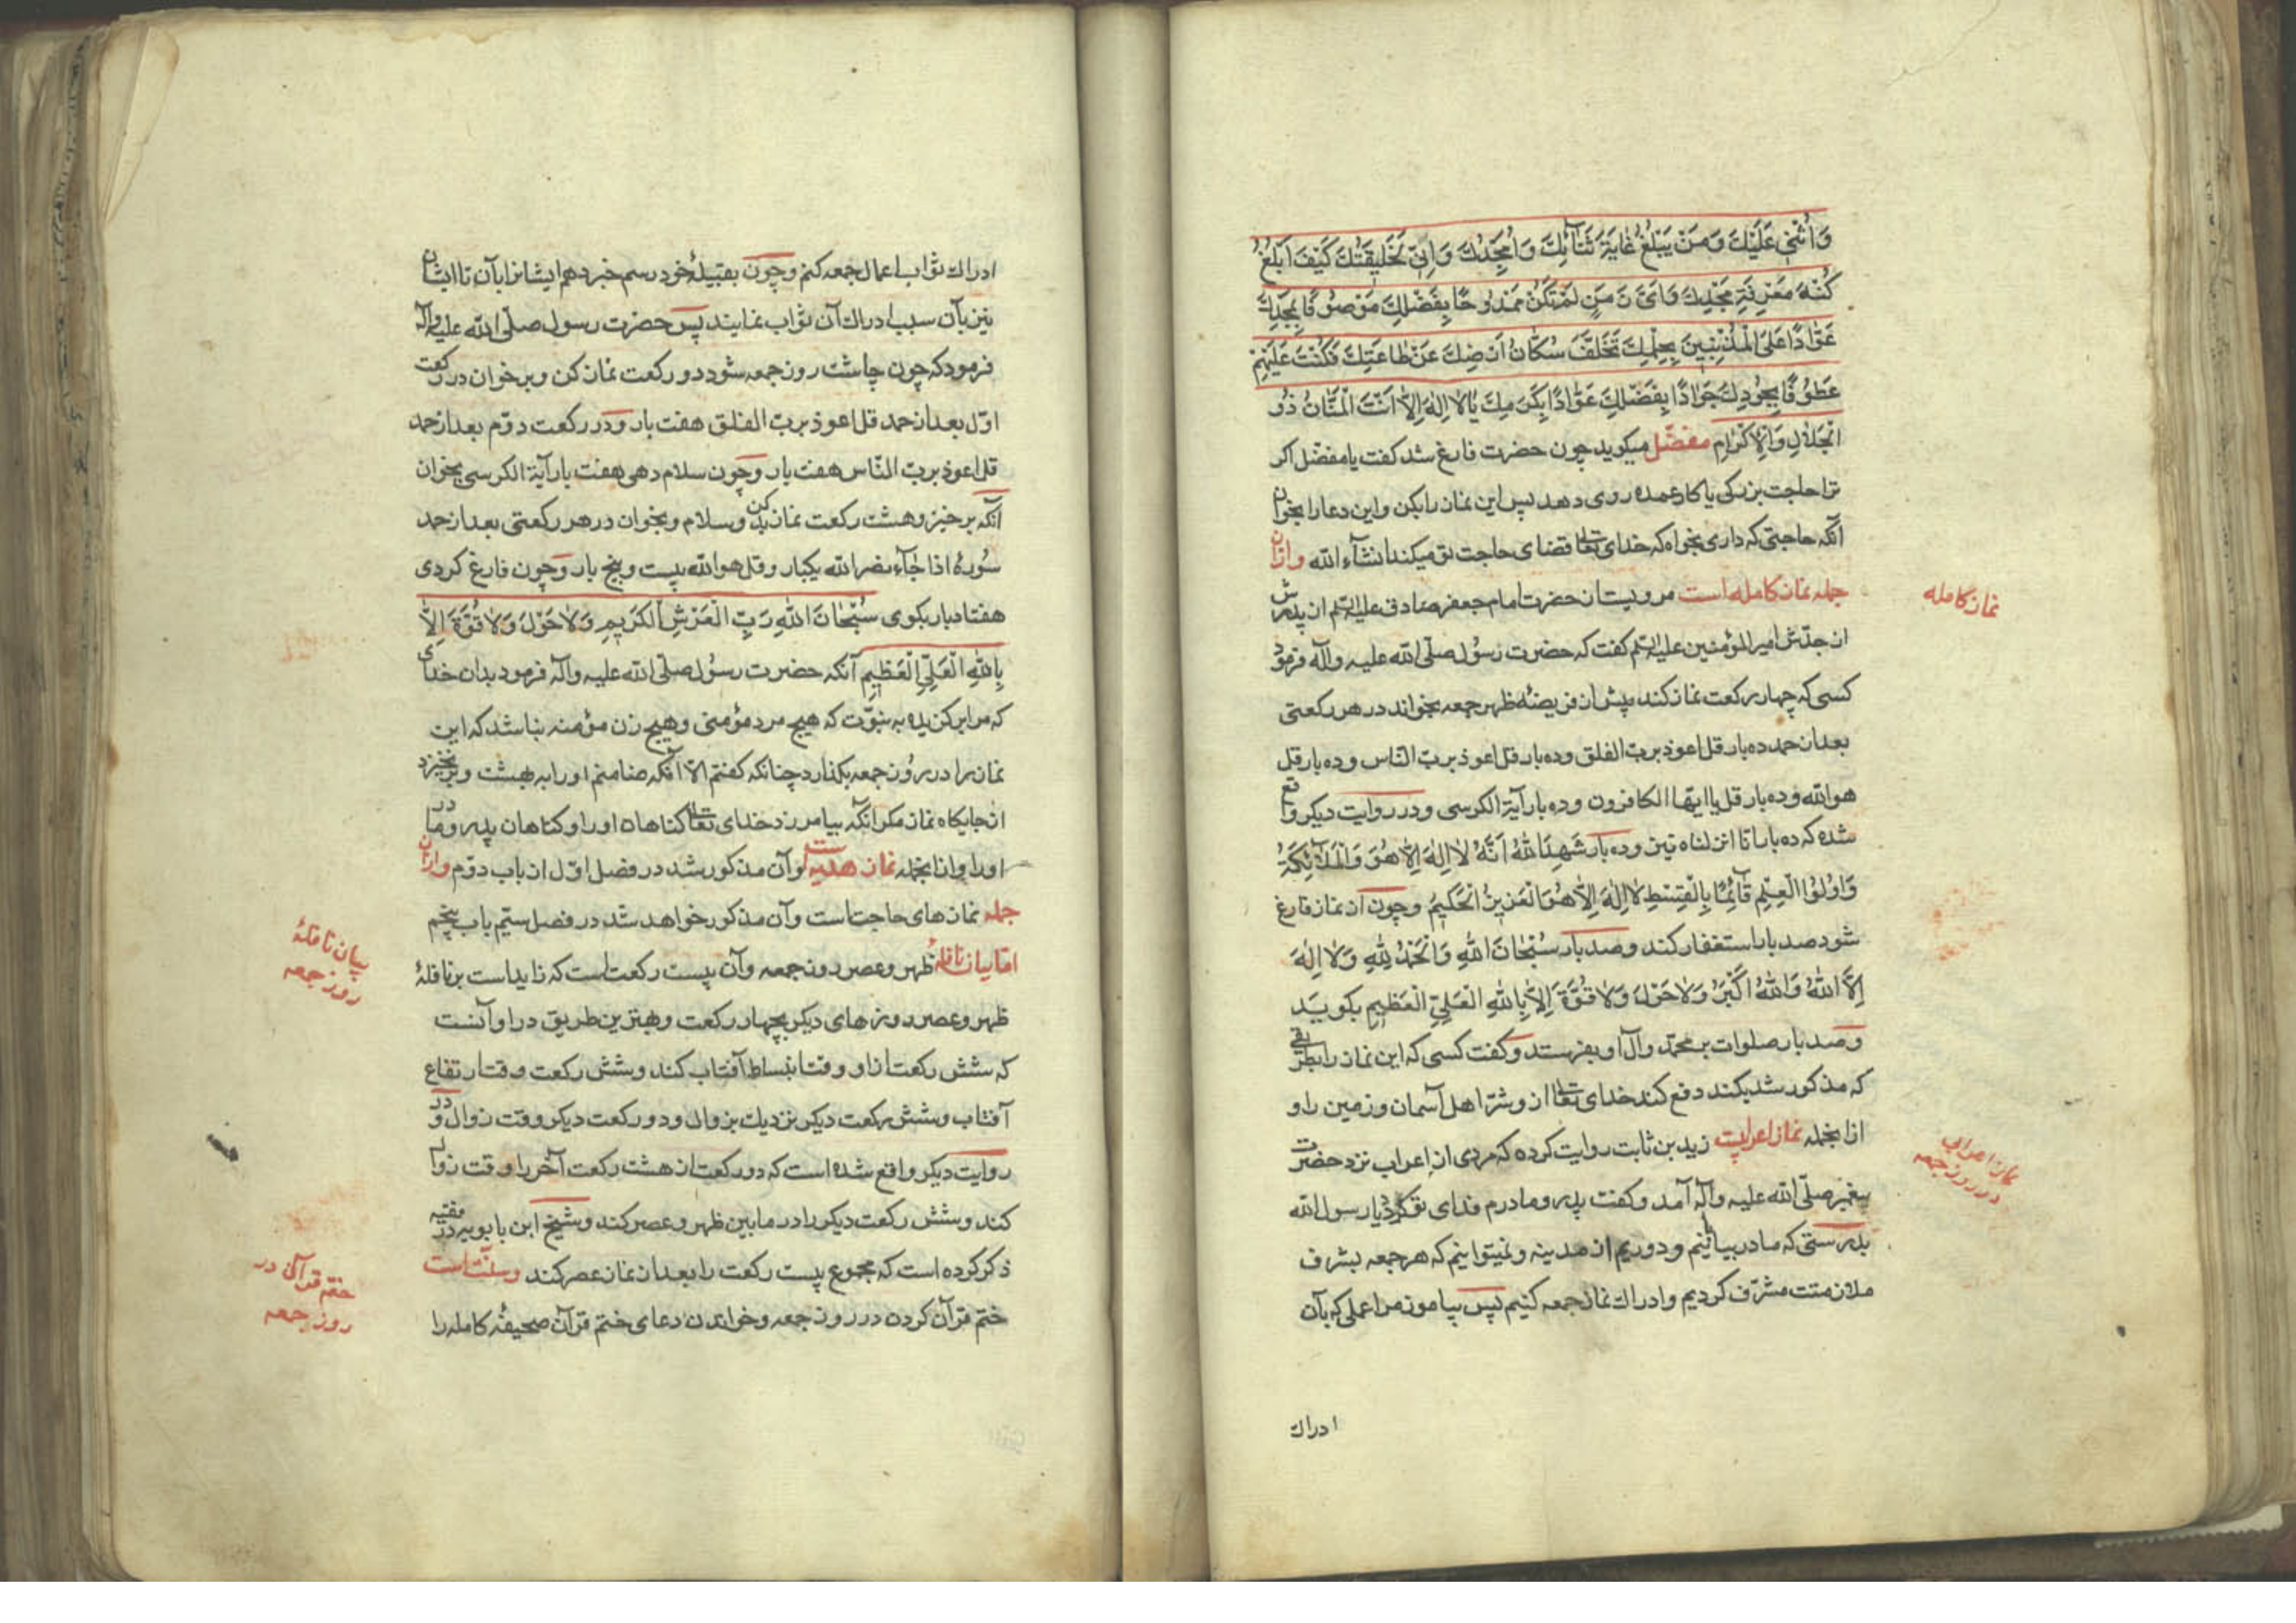 وَاُثْنِي عَلَيْكَ وَمَنْ يَبْلُغُ غايَةَ ثَنآئِكَ وَاُمَجِّدُكَ وَاِنّي لِخَليقَتِكَ كَيْفَ اَبْلُغُ
كُنْهَ مَعْرِفَةِ مَجْدِكَ وَاَيَّ زَمَنٍ لَمْ تَكُنْ مَمْدُوحًا بِفَضْلِكَ مَوْصُوفًا بِمَجْدِكَ
عَوّادًا عَلَى الْمُذْنِبينَ بِحِلْمِكَ تَخَلَّفَ سُكّانُ اَرْضِكَ عَنْ طاعَتِكَ فَكُنْتَ عَلَيْهِمْ
عَطُوفًا بِجُودِكَ جَوادًا بِفَضْلِكَ عَوّادًا بِكَرَمِكَ يا لا اِلهَ اِلّا اَنْتَ الْمَنّانُ ذُو
الْجَلالِ وَالْاِكْرامِ مفضّل میکوید چون حضرت فارغ شد کفت یا مفضّل اکر
ترا حاجت بزرکی یا کار عمده روی دهد پس این نماز را بکن و این دعا را بخوان
آنکه حاجتی که داری بخواه که خدای تعالی قضای حاجت تو میکند انشآء الله و ازان
جمله نماز کامله است مرویست از حضرت امام جعفر صادق علیه السلم از پدرش
از جدّش امیر المؤمنین علیه السلم کفت که حضرت رسول صلّی الله علیه وآله فرمود
کسی که چهار رکعت نماز کند پیش از فریضهٔ ظهر جمعه بخواند در هر رکعتی
بعد از حمد ده بار قل اعوذ بربّ الفلق و ده بار قل اعوذ بربّ النّاس و ده بار قل
هو الله و ده بار قل یا ایّها الکافرون و ده بار آیة الکرسی و در روایت دیکر واقع
شده که ده بار انا انزلناه نیز و ده بار شَهِدَ اللهُ اَنَّهُ لا اِلهَ اِلّا هُوَ وَالْمَلآئِکَةُ
وَاُولُوا الْعِلْمِ قآئِمًا بِالْقِسْطِ لا اِلهَ اِلّا هُوَ الْعَزیزُ الْحَکیمُ و چون از نماز فارغ
شود صد بار استغفار کند و صد بار سُبْحانَ اللهِ وَالْحَمْدُ لِلّهِ وَلا اِلهَ
اِلَّا اللهُ وَاللهُ اَکْبَرُ وَلا حَوْلَ وَلا قُوَّةَ اِلّا بِاللهِ الْعَلِيِّ الْعَظیمِ بکوید
و صد بار صلوات بر محمّد و آل او بفرستد و کفت کسی که این نماز را بطریقی
که مذکور شد بکند دفع کند خدای تعالی از و شرّ اهل آسمان و زمین را و
ازانجمله نماز اعرابیست زید بن ثابت روایت کرده که مردی از اعراب نزد حضرت
پیغمبر صلّی الله علیه وآله آمد و کفت پدر و مادرم فدای تو کردد یا رسول الله
بدرستی که ما در بیابانیم و دوریم از مدینه و نمیتوانیم که هر جمعه بشرف
ملازمتت مشرّف کردیم و ادراك نماز جمعه کنیم پس بیاموز مرا عملی که بآن
ادراك
نماز کامله
نماز اعرابی
در روز جمعه
ادراك ثواب اعمال جمعه کنم و چون بقبیلهٔ خود رسم خبر دهم ایشانرا بآن تا ایشان
نیز بآن سبب ادراك آن ثواب نمایند پس حضرت رسول صلّی الله علیه وآله
فرمود که چون چاشت روز جمعه شود دو رکعت نماز کن و برخوان در رکعت
اوّل بعد از حمد قل اعوذ بربّ الفلق هفت بار و در رکعت دوّم بعد از حمد
قل اعوذ بربّ النّاس هفت بار و چون سلام دهی هفت بار آیة الکرسی بخوان
آنکه برخیز و هشت رکعت نماز بکن بدو سلام و بخوان در هر رکعتی بعد از حمد
سورهٔ اذا جآء نصر الله یکبار و قل هو الله بیست و پنج بار و چون فارغ کردی
هفتاد بار بکوی سُبْحانَ اللهِ رَبِّ الْعَرْشِ الْکَریمِ وَلا حَوْلَ وَلا قُوَّةَ اِلّا
بِاللهِ الْعَلِيِّ الْعَظیمِ آنکه حضرت رسول صلّی الله علیه وآله فرمود بدان خدای
که مرا برکزیده به نبوّت که هیچ مرد مؤمنی و هیچ زن مؤمنه نباشد که این
نماز را در روز جمعه بکذارد چنانکه کفتم الّا آنکه ضامنم او را به بهشت و برنخیزد
از جایکاه نماز مکر آنکه بیامرزد خدای تعالی کناهان او را و کناهان پدر و مادر
او را و ازانجمله نماز هدیه است و آن مذکور شد در فصل اوّل از باب دوّم و ازان
جمله نمازهای حاجتست و آن مذکور خواهد شد در فصل سیّم باب پنجم
امّا بیان نافلهٔ ظهر و عصر روز جمعه و آن بیست رکعت است که زاید است بر نافلهٔ
ظهر و عصر روزهای دیکر بچهار رکعت و بهترین طریق در او آنست
که شش رکعت از او وقت انبساط آفتاب کند و شش رکعت وقت ارتفاع
آفتاب و شش رکعت دیکر نزدیك بزوال و دو رکعت دیکر وقت زوال و در
روایت دیکر واقع شده است که دو رکعت از هشت رکعت آخر را وقت زوال
کند و شش رکعت دیکر را در ما بین ظهر و عصر کند و شیخ ابن بابویه در فقیه
ذکر کرده است که مجموع بیست رکعت را بعد از نماز عصر کند و سنّت است
ختم قرآن کردن در روز جمعه و خواندن دعای ختم قرآن صحیفهٔ کامله را
بیان نافلهٔ
روز جمعه
ختم قرآن در
روز جمعه